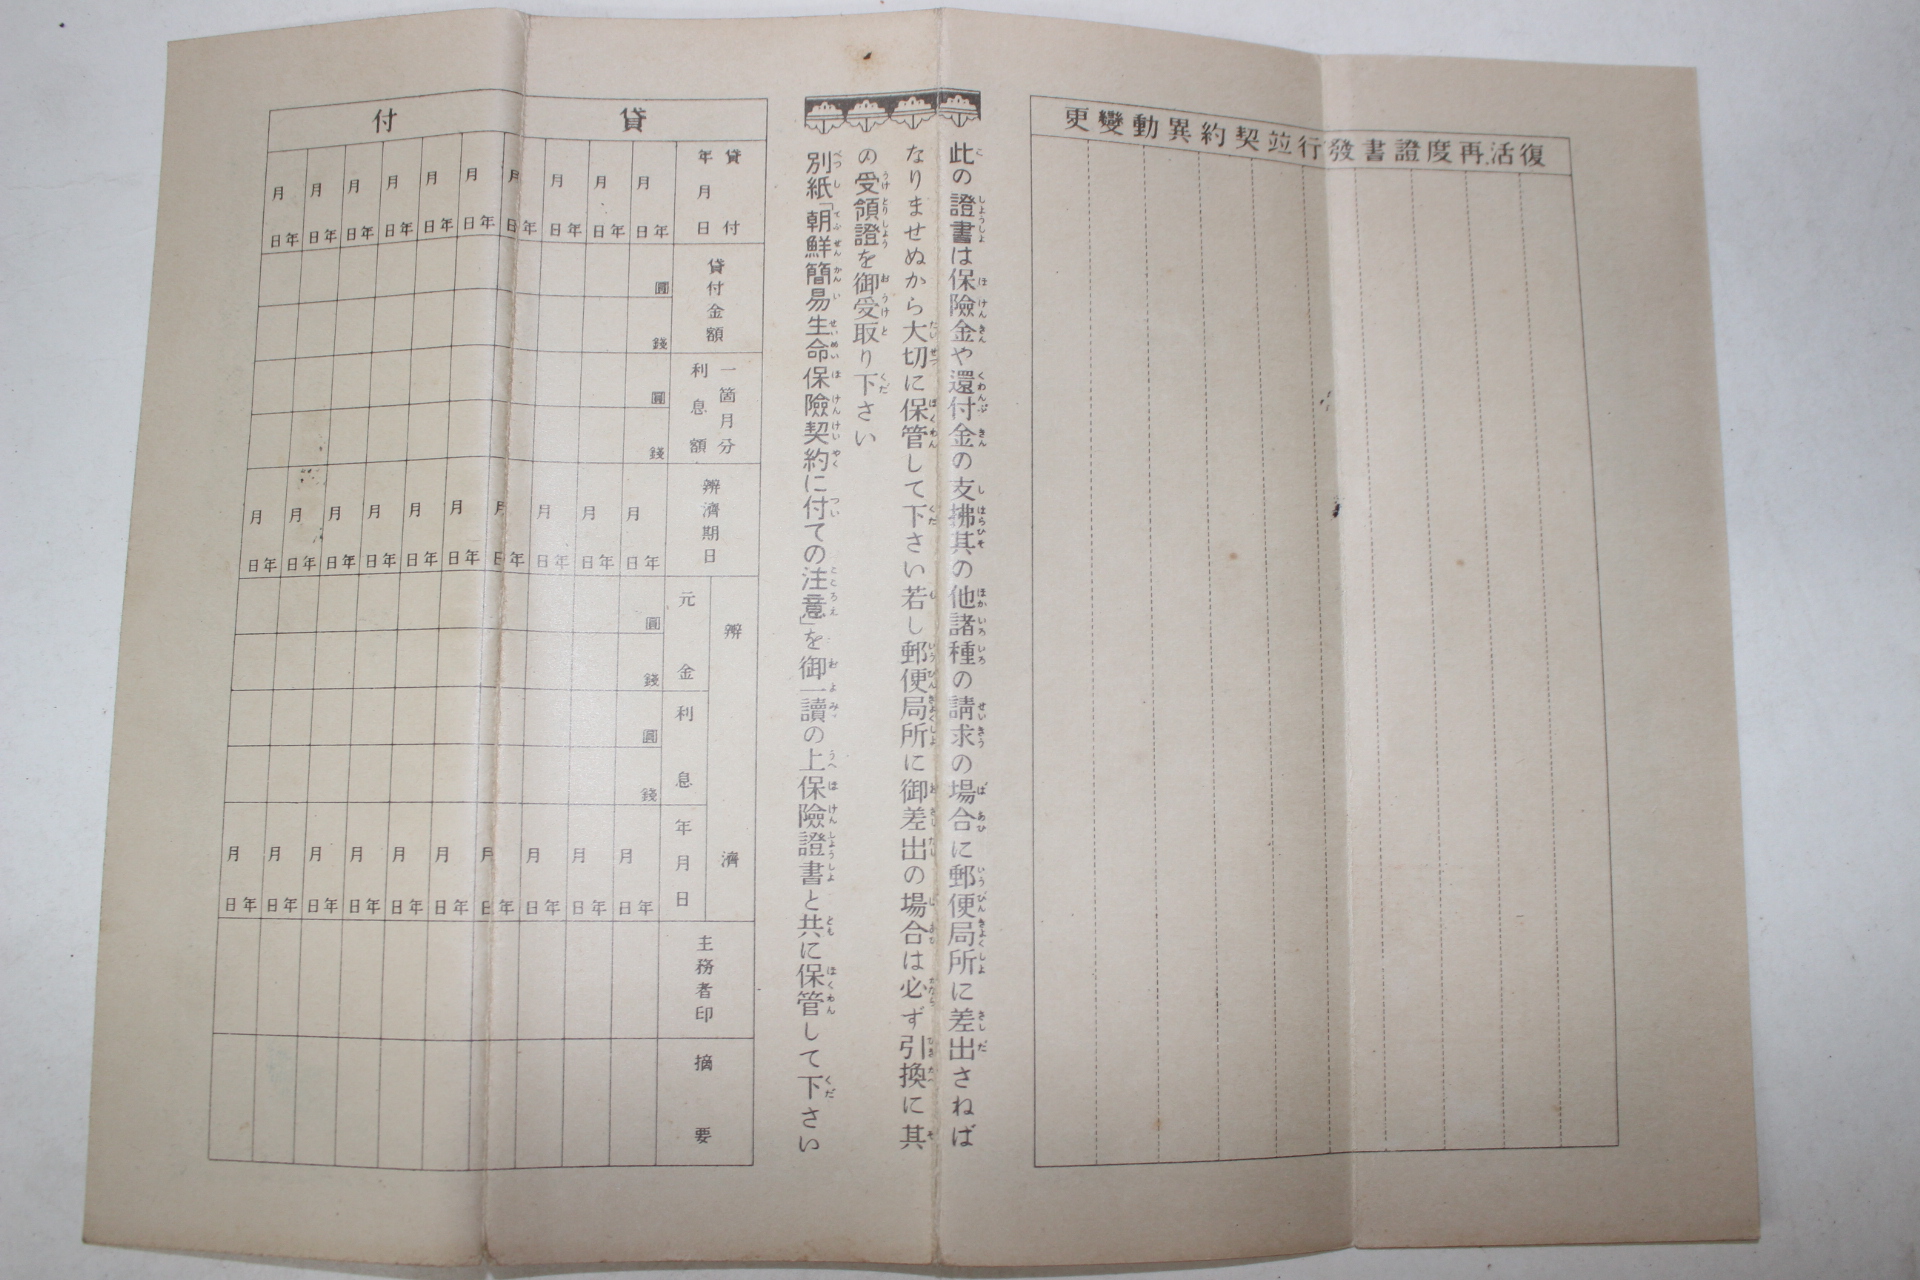 復活、再度證書發行竝契約異動變更
此の證書は保險金や還付金の支拂其の他諸種の請求の場合に郵便局所に差出さねば
なりませぬから大切に保管して下さい若し郵便局所に御差出の場合は必ず引換に其
の受領證を御受取り下さい
別紙「朝鮮簡易生命保險契約に付ての注意」を御一讀の上保險證書と共に保管して下さい
貸付
貸付年月日
年月日 年月日 年月日 年月日 年月日 年月日 年月日 年月日 年月日 年月日
貸付金額
圓
錢
一箇月分利息額
圓
錢
辨濟期日
年月日 年月日 年月日 年月日 年月日 年月日 年月日 年月日 年月日 年月日
辨濟
元金
圓
錢
利息
圓
錢
年月日
年月日 年月日 年月日 年月日 年月日 年月日 年月日 年月日 年月日 年月日
主務者印
摘要